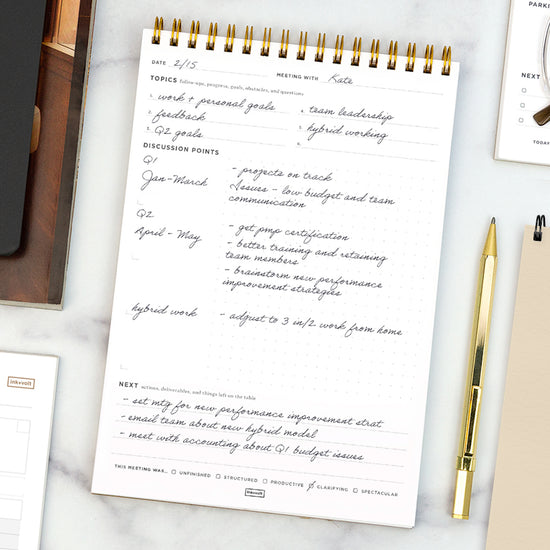 DATE 2/15 MEETING WITH Kate
TOPICS follow-ups, progress, goals, obstacles, and questions
1. work + personal goals 4. team leadership
2. feedback 5. hybrid working
3. Q2 goals 6.
DISCUSSION POINTS
Q1
Jan-March - projects on track
Issues - low budget and team
communication
Q2
April - May - get pmp certification
- better training and retaining
team members
- brainstorm new performance
improvement strategies
hybrid work - adjust to 3 in/2 work from home
NEXT actions, deliverables, and things left on the table
- set mtg for new performance improvement strat
- email team about new hybrid model
- meet with accounting about Q1 budget issues
THIS MEETING WAS... UNFINISHED STRUCTURED PRODUCTIVE CLARIFYING SPECTACULAR
ink+volt
ink+volt
NEXT
TODAY